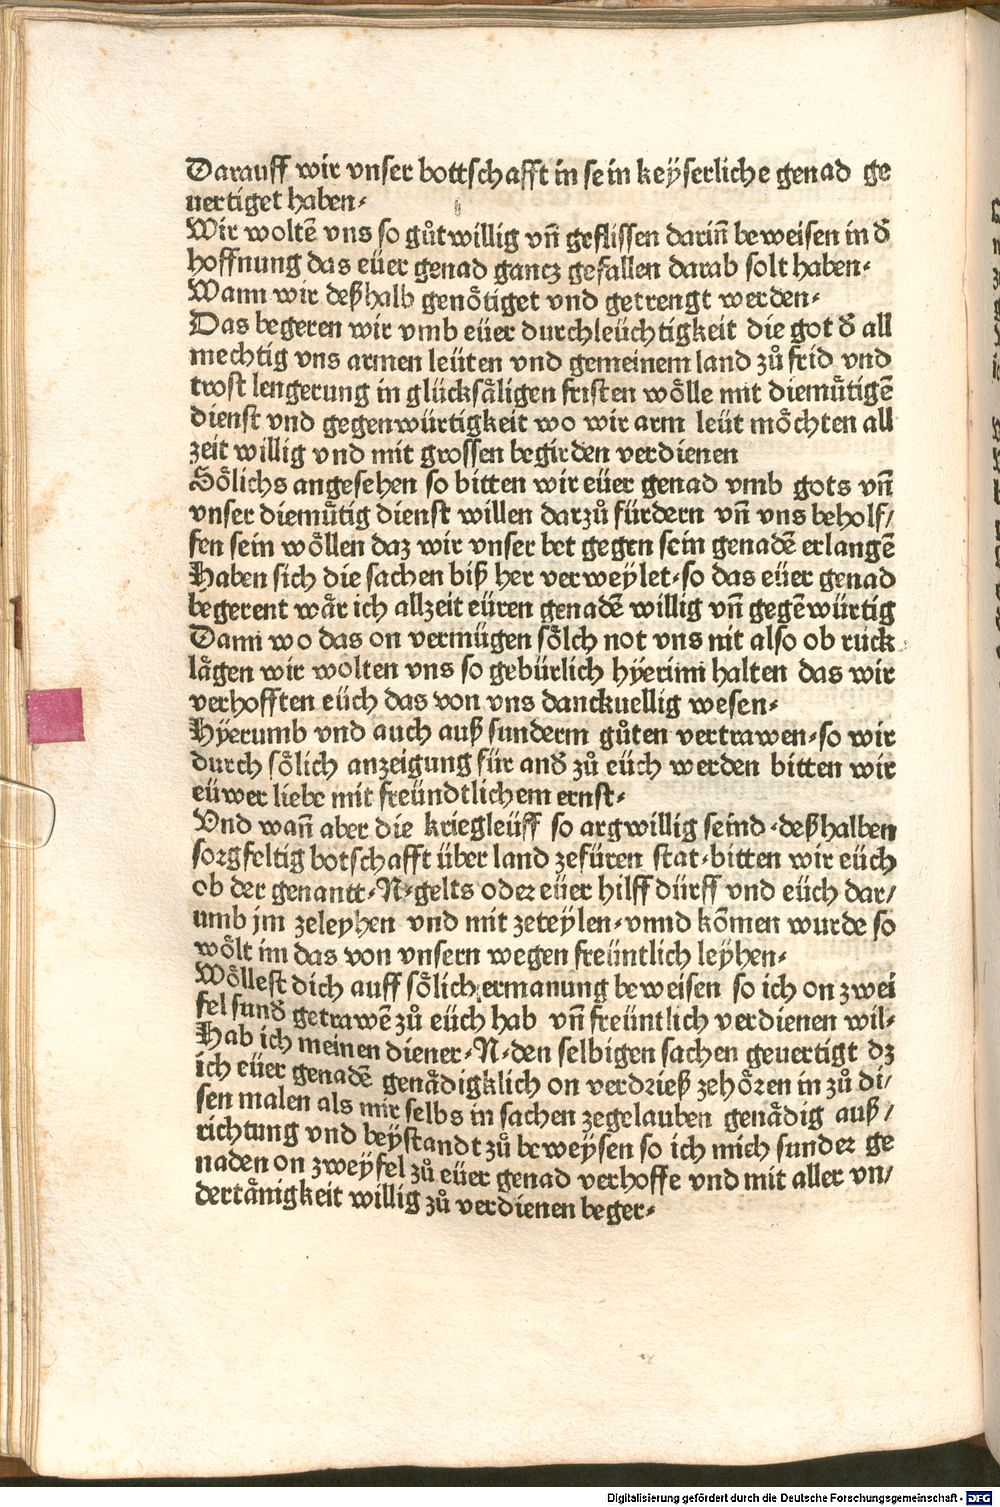 Darauff wir vnser bottschafft in sein keÿserliche genad ge
uertiget haben·
Wir woltē vns so gůtwillig vn̄ geflissen darin̄ beweisen in đ
hoffnung das eüer genad gancz gefallen darab solt haben·
Wann wir deßhalb genötiget vnd getrengt werden·
Das begeren wir vmb eüer durchleüchtigkeit die got đ all
mechtig vns armen leüten vnd gemeinem land zů frid vnd
trost lengerung in glücksäligen fristen wölle mit diemütigē
dienst vnd gegenwürtigkeit wo wir arm leüt möchten all
zeit willig vnd mit grossen begirden verdienen
Sölichs angesehen so bitten wir eüer genad vmb gots vn̄
vnser diemütig dienst willen darzů fürdern vn̄ vns beholf/
fen sein wöllen daz wir vnser bet gegen sein genadē erlangē
Haben sich die sachen biß her verweylet·so das eüer genad
begerent wär ich allzeit eüren genadē willig vn̄ gegēwürtig
Dann wo das on vermügen sölch not vns nit also ob ruck
lägen wir wolten vns so gebürlich hÿerinn halten das wir
verhofften eüch das von vns danckuellig wesen·
Hÿerumb vnd auch auß sunderm gůten vertrawen·so wir
durch sölich anzeigung für anđ zů eüch werden bitten wir
eüwer liebe mit freündtlichem ernst·
Vnd wan̄ aber die kriegleüff so argwillig seind·deßhalben
sorgfeltig botschafft über land zefüren stat·bitten wir eüch
ob der genantt·N·gelts oder eüer hilff dürff vnd eüch dar/
umb jm zeleyhen vnd mit zeteÿlen·vnnd kōmen wurde so
wölt im das von vnsern wegen freüntlich leÿhen·
Wöllest dich auff sölich ermanung beweisen so ich on zwei
fel sunđ getrawē zů eüch hab vn̄ freüntlich verdienen wil·
Hab ich meinen diener·N·den selbigen sachen geuertigt dz
ich eüer genadē genädigklich on verdrieß zehören in zů di/
sen malen als mir selbs in sachen zegelauben genädig auß/
richtung vnd beÿstandt zů beweysen so ich mich sunder ge
naden on zweÿfel zů eüer genad verhoffe vnd mit aller vn/
dertänigkeit willig zů verdienen beger·
Digitalisierung gefördert durch die Deutsche Forschungsgemeinschaft - DFG